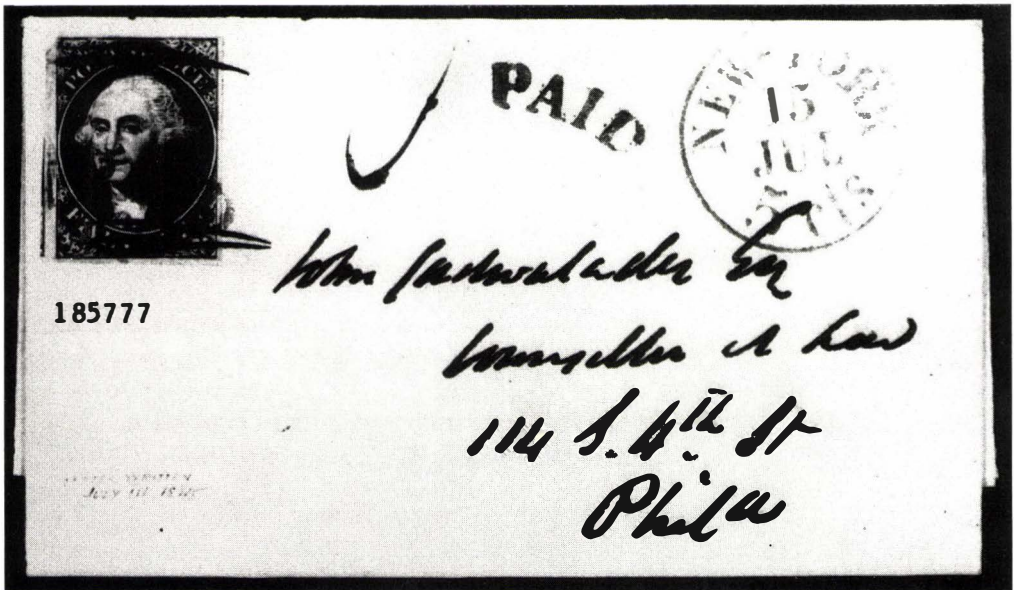 POST OFFICE
PAID
NEW-YORK
15
JUL
5 cts
185777
John Cadwalader Esq
Counsellor at Law
114 S. 4th St
Phila
JULY